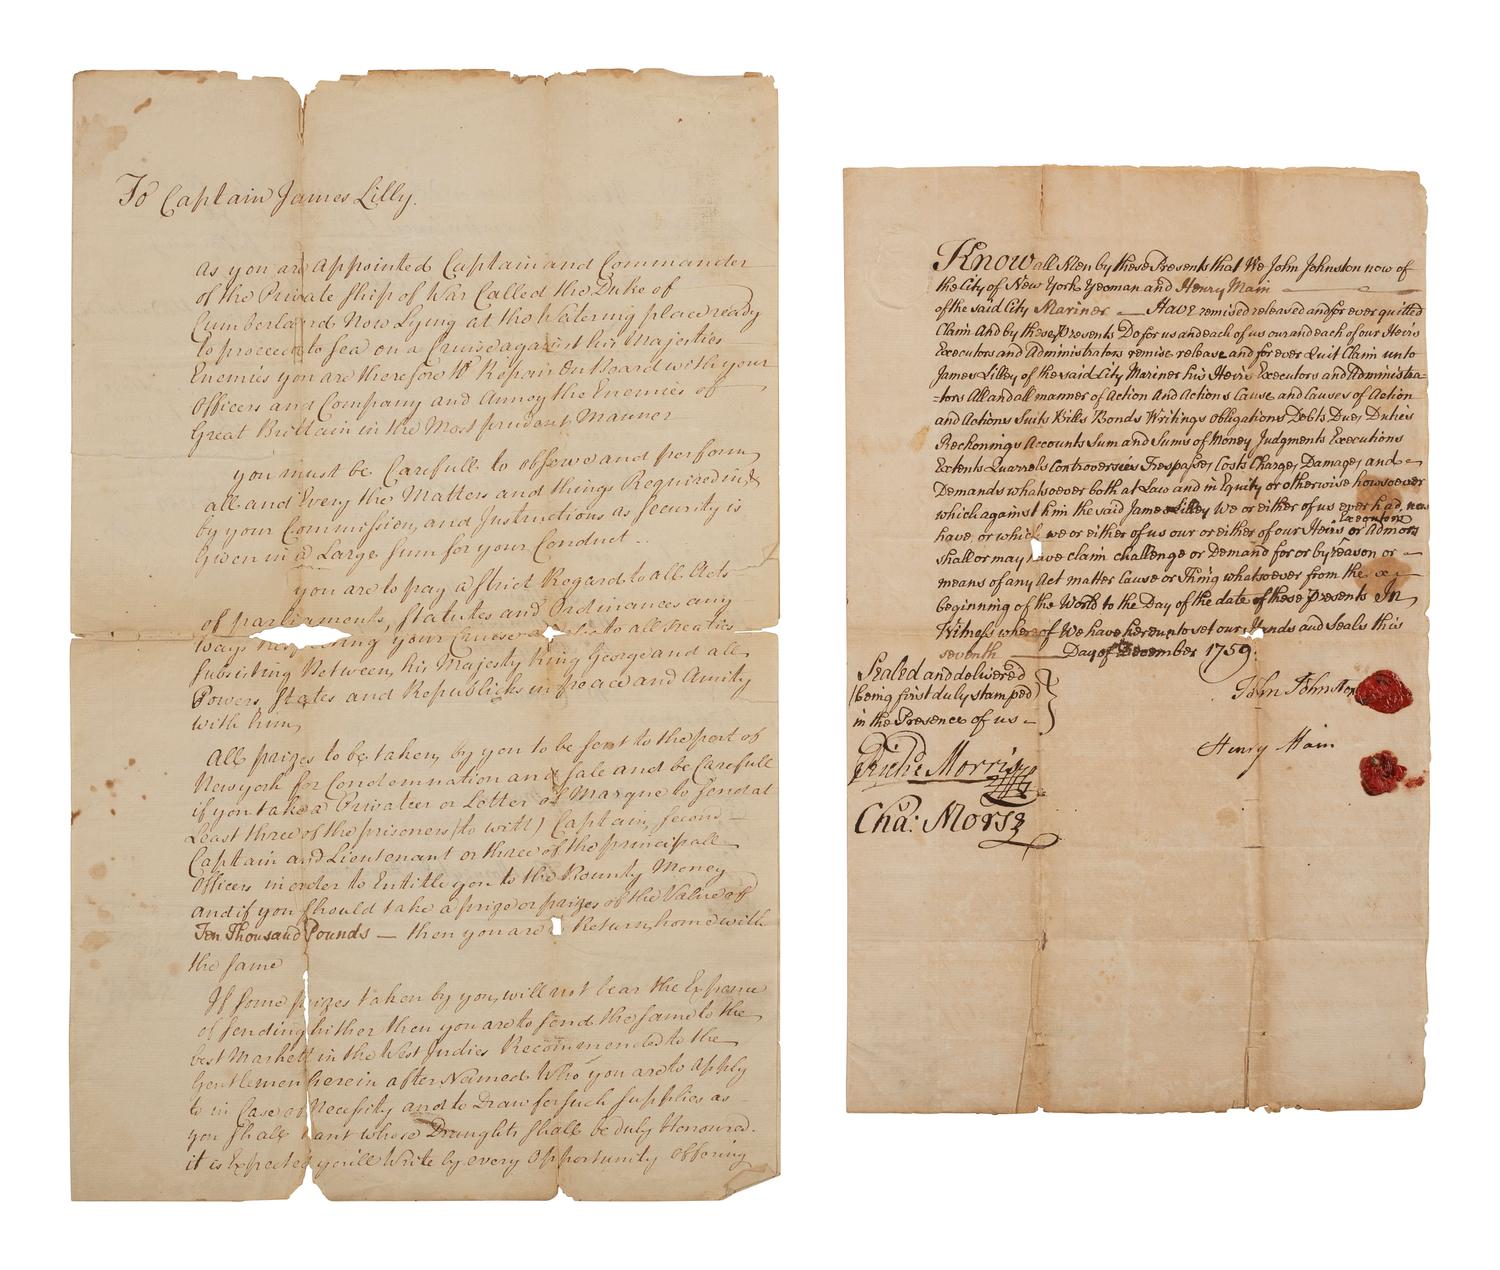 To Captain James Lilly.
As you are Appointed Captain and Commander
of the Private Ship of War Called the Duke of
Cumberland Now Lying at the Watering place ready
to proceed to Sea on a Cruise against his Majesties
Enemies you are therefore to Repair On Board with your
Officers and Company and Annoy the Enemies of
Great Brittain in the Most prudent Manner
you must be Carefull to observe and perform
all and Every the Matters and things Required in
by your Commission, and Instructions as Security is
Given in a Large Sum for your Conduct.
you are to pay a Strict Regard to all Acts
of parliaments, Statutes and Ordinances any
ways your to all treaties
Subsisting Between, his Majesty King George and all
Powers, States and Republicks in peace and Amity
with him,
All prizes to be taken, by you to be sent to the port of
Newyork for Condemnation and Sale and be Carefull
if you take a Privateer or Letter of Marque to Send at
Least three of the prisoners (to witt) Captain, Second
Captain and Lieutenant or three of the principall
Officers in order to Entitle you to the Bounty Money
and if you Should take a prize or prizes of the Value of
Ten Thousand Pounds — then you are Return, home with
the Same
If Some prizes taken by you, will not bear the Expence
of Sending hither then you are to Send the Same to the
best Markett in the West Indies Recommended to the
Gentlemen herein after Named Who you are to Apply
to in Case of Necessity and to Draw for such Supplies as
you Shall want whose Draughts Shall be duly Honoured.
it is Expected you'll Write by every Opportunity offering
Know all Men by these Presents that We John Johnston now of
the City of New York Yeoman and Henry Main
of the said City Mariner — Have remised released and for ever quitted
Claim And by these Presents Do for us and each of us our and each of our Heirs
Executors and Administrators remise release and for ever Quit Claim unto
James Lilley of the said City Mariner his Heirs Executors and Administra-
-tors All and all manner of Action And Actions Cause and Causes of Action
and Actions Suits Bills Bonds Writings obligations Debts Dues Duties
Reckonings Accounts Sum and Sums of Money Judgments Executions
Extents Quarrels Controversies Trespasses Costs Charges Damages and
Demands whatsoever both at Law and in Equity or otherwise howsoever
which against him the said James Lilley We or either of us ever had, now
Executors
have, or which we or either of us our or either of our Heirs or Admors
shall or may have claim challenge or Demand for or by reason or
means of any Act matter Cause or Thing whatsoever from the
beginning of the World to the Day of the date of these presents In
Witness whereof We have hereunto set our Hands and Seals this
seventh Day of December 1759.
Sealed and delivered
(being first duly stamped)
in the Presence of us
John Johnston
Henry Main
Richd Morris
Cha: Morse